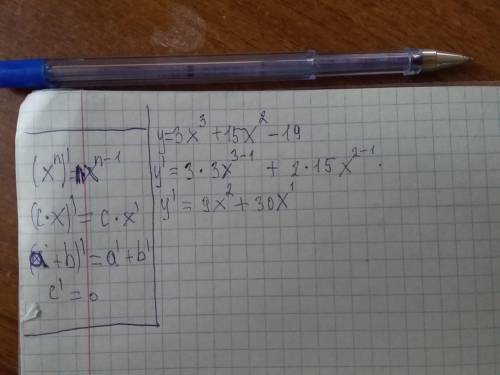 (xⁿ)' = nxⁿ⁻¹
(c·x)' = c·x'
(a+b)' = a'+b'
c' = 0
y=3x³+15x²-19
y' = 3·3x³⁻¹ + 2·15x²⁻¹.
y' = 9x²+30x¹